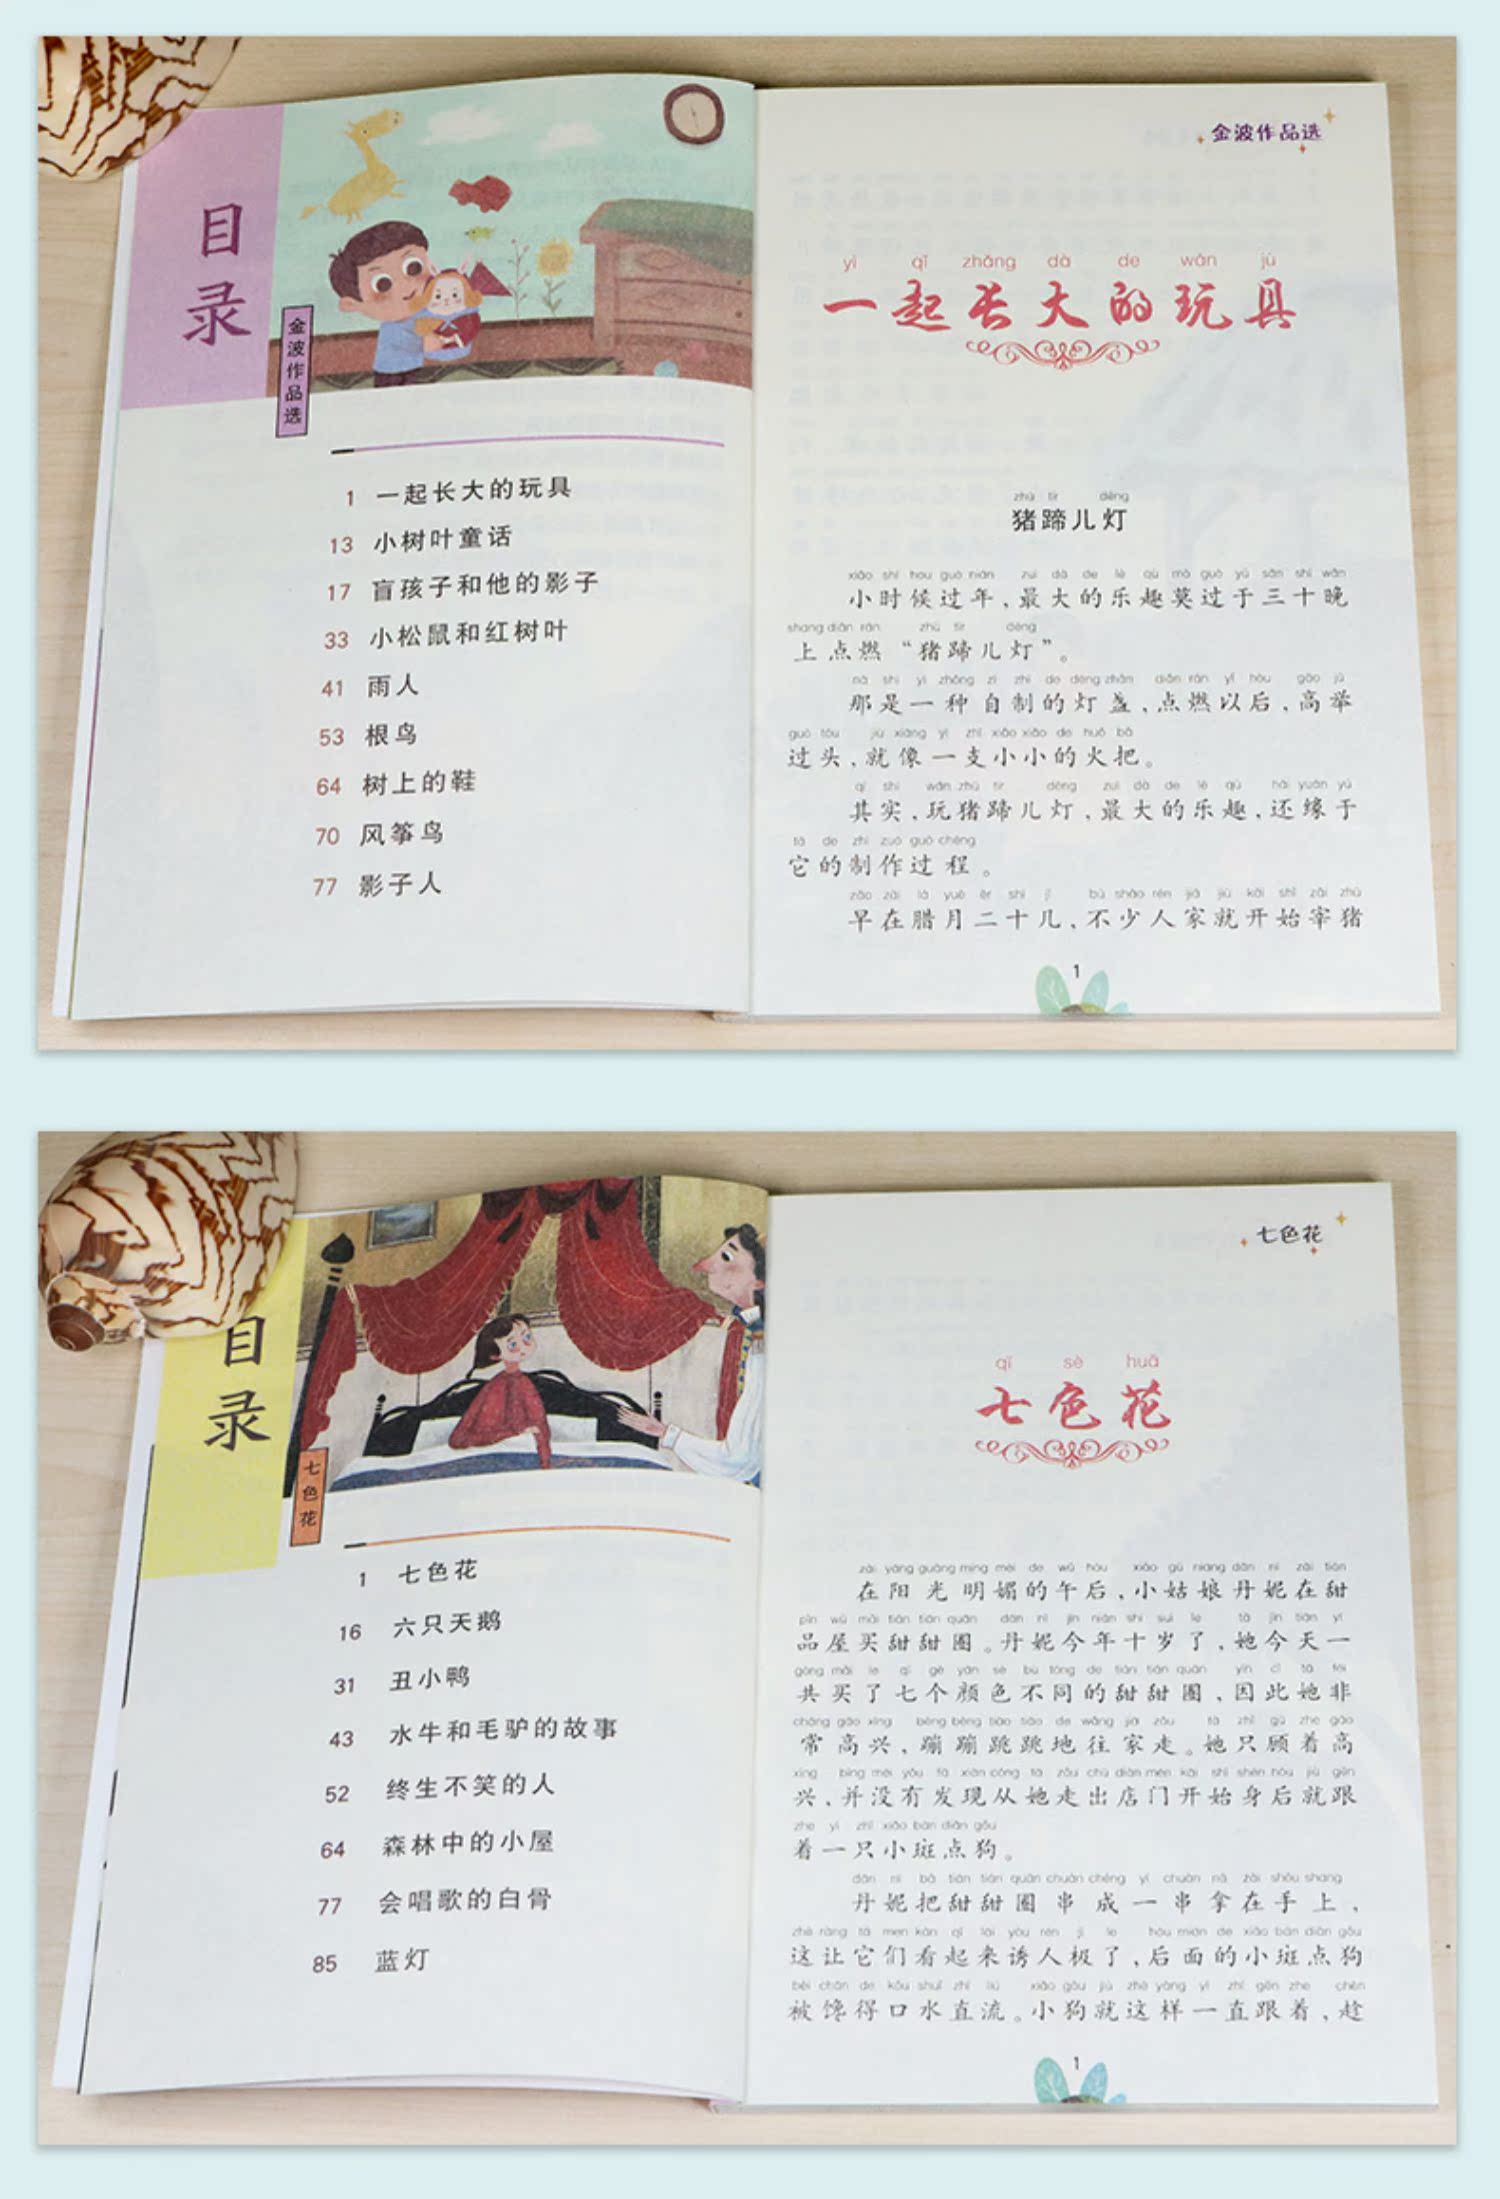 目录
金波作品选
1 一起长大的玩具
13 小树叶童话
17 盲孩子和他的影子
33 小松鼠和红树叶
41 雨人
53 根鸟
64 树上的鞋
70 风筝鸟
77 影子人
金波作品选
yì qǐ zhǎng dà de wán jù
一起长大的玩具
zhū tír dēng
猪蹄儿灯
xiǎo shí hou guò nián zuì dà de lè qù mò guò yú sān shí wǎn
小时候过年，最大的乐趣莫过于三十晚
shang diǎn rán zhū tír dēng
上点燃“猪蹄儿灯”。
nà shì yì zhǒng zì zhì de dēng zhǎn diǎn rán yǐ hòu gāo jǔ
那是一种自制的灯盏，点燃以后，高举
guò tóu jiù xiàng yì zhī xiǎo xiǎo de huǒ bǎ
过头，就像一支小小的火把。
qí shí wán zhū tír dēng zuì dà de lè qù hái yuán yú
其实，玩猪蹄儿灯，最大的乐趣，还缘于
tā de zhì zuò guò chéng
它的制作过程。
zǎo zài là yuè èr shí jǐ bù shǎo rén jiā jiù kāi shǐ zǎi zhū
早在腊月二十几，不少人家就开始宰猪
1
目录
七色花
1 七色花
16 六只天鹅
31 丑小鸭
43 水牛和毛驴的故事
52 终生不笑的人
64 森林中的小屋
77 会唱歌的白骨
85 蓝灯
七色花
qī sè huā
七色花
zài yáng guāng míng mèi de wǔ hòu xiǎo gū niang dān nī zài tián
在阳光明媚的午后，小姑娘丹妮在甜
pǐn wū mǎi tián tián quān dān nī jīn nián shí suì le tā jīn tiān yí
品屋买甜甜圈。丹妮今年十岁了，她今天一
gòng mǎi le qī gè yán sè bù tóng de tián tián quān yīn cǐ tā fēi
共买了七个颜色不同的甜甜圈，因此她非
cháng gāo xìng bèng bèng tiào tiào de wǎng jiā zǒu tā zhǐ gù zhe gāo
常高兴，蹦蹦跳跳地往家走。她只顾着高
xìng bìng méi yǒu fā xiàn cóng tā zǒu chū diàn mén kāi shǐ shēn hòu jiù gēn
兴，并没有发现从她走出店门开始身后就跟
zhe yì zhī xiǎo bān diǎn gǒu
着一只小斑点狗。
dān nī bǎ tián tián quān chuàn chéng yí chuàn ná zài shǒu shang
丹妮把甜甜圈串成一串拿在手上，
zhè ràng tā men kàn qǐ lái yòu rén jí le hòu miàn de xiǎo bān diǎn gǒu
这让它们看起来诱人极了，后面的小斑点狗
bèi chán de kǒu shuǐ zhí liú xiǎo gǒu jiù zhè yàng yì zhí gēn zhe chèn
被馋得口水直流。小狗就这样一直跟着，趁
1